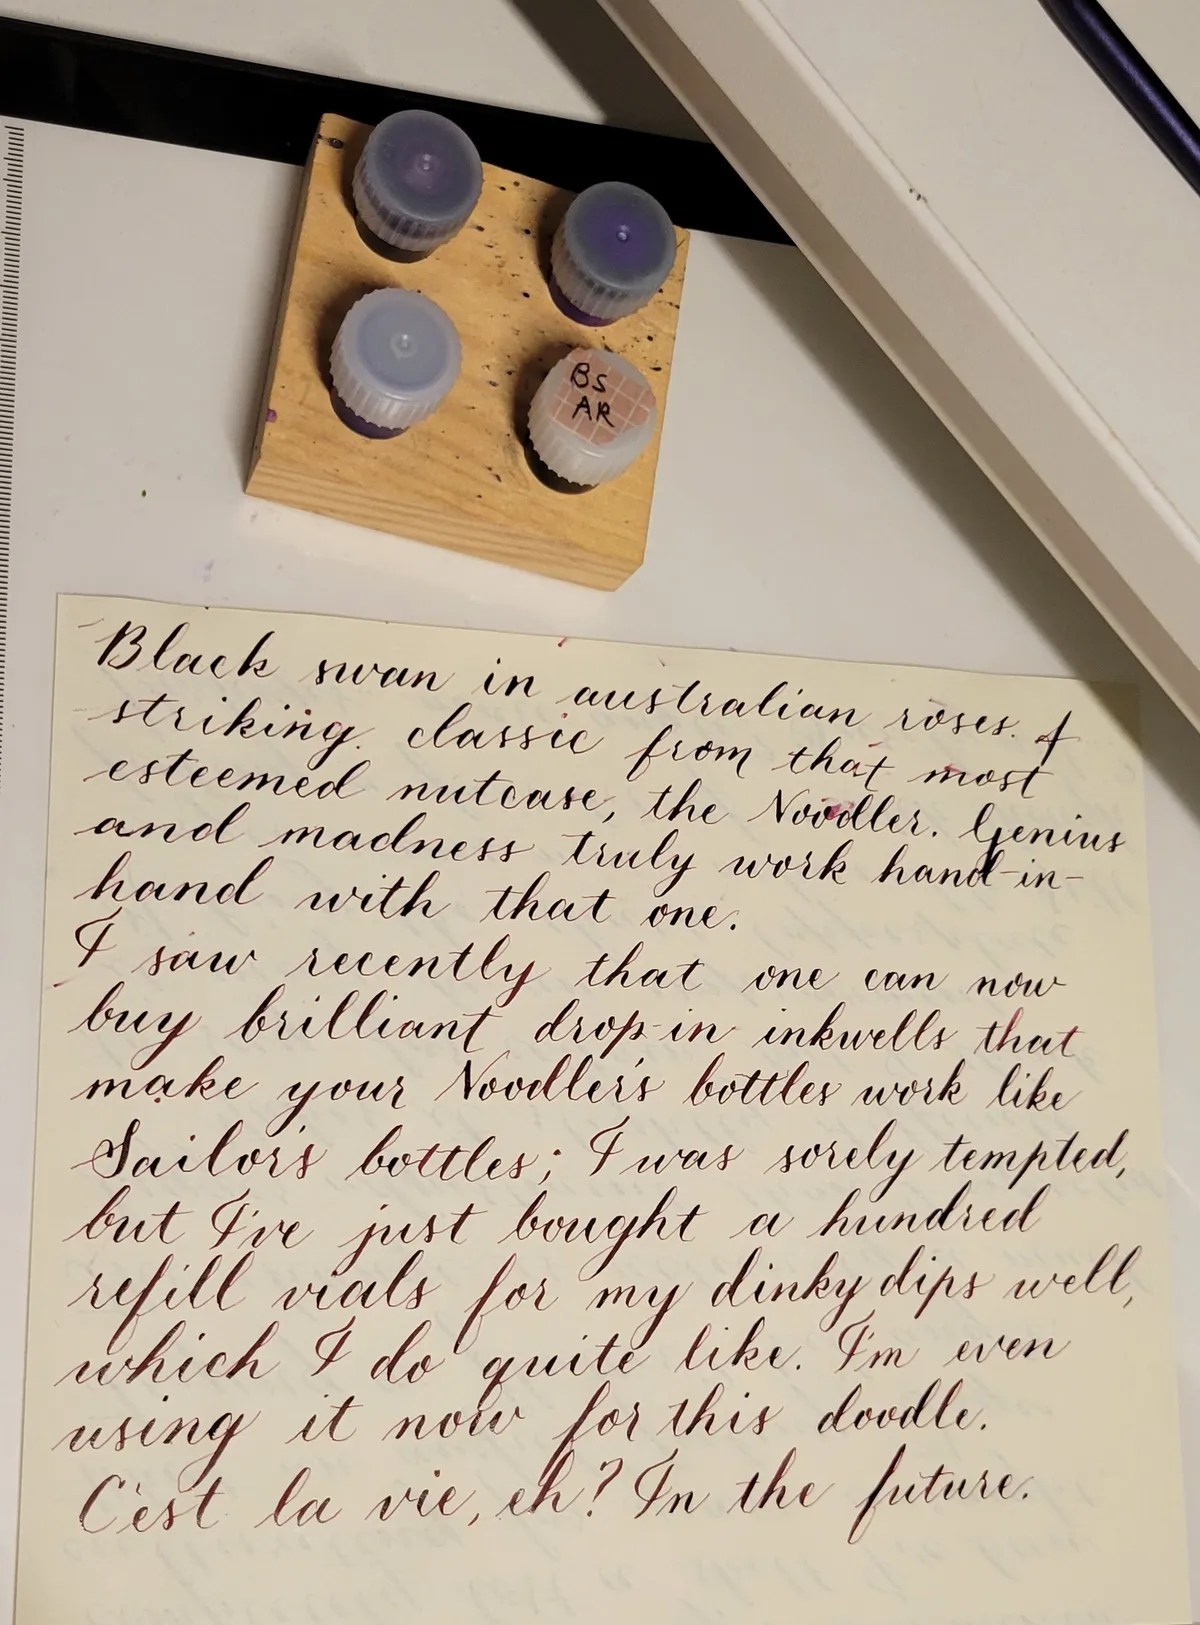 BS
AR
Black swan in australian roses. A
striking classic from that most
esteemed nutcase, the Noodler. Genius
and madness truly work hand-in-
hand with that one.
I saw recently that one can now
buy brilliant drop-in inkwells that
make your Noodler's bottles work like
Sailor's bottles; I was sorely tempted,
but I've just bought a hundred
refill vials for my dinky dips well,
which I do quite like. I'm even
using it now for this doodle.
C'est la vie, eh? In the future.